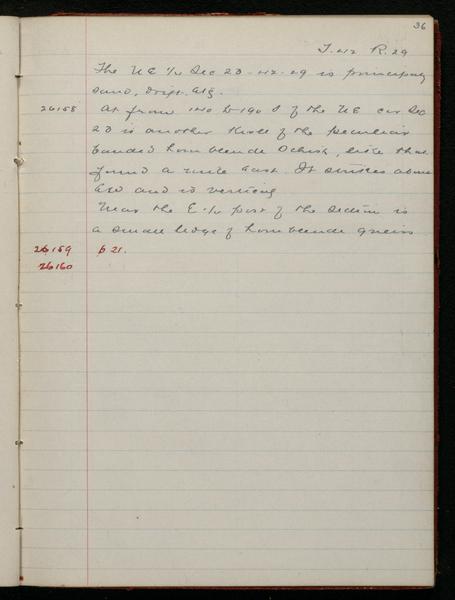 36
T. 42 R. 29
The NE 1/4 Sec 23 - 42 - 29 is principally
sand, drift. etc.
26158 At from 140 to 190 S of the NE cor Sec
23 is another knoll of the peculiar
banded hornblende schist, like that
found a mile east. It strikes about
EW and is vertical
Near the E 1/4 post of the section is
a small ledge of hornblende gneiss
26159 p 21.
26160